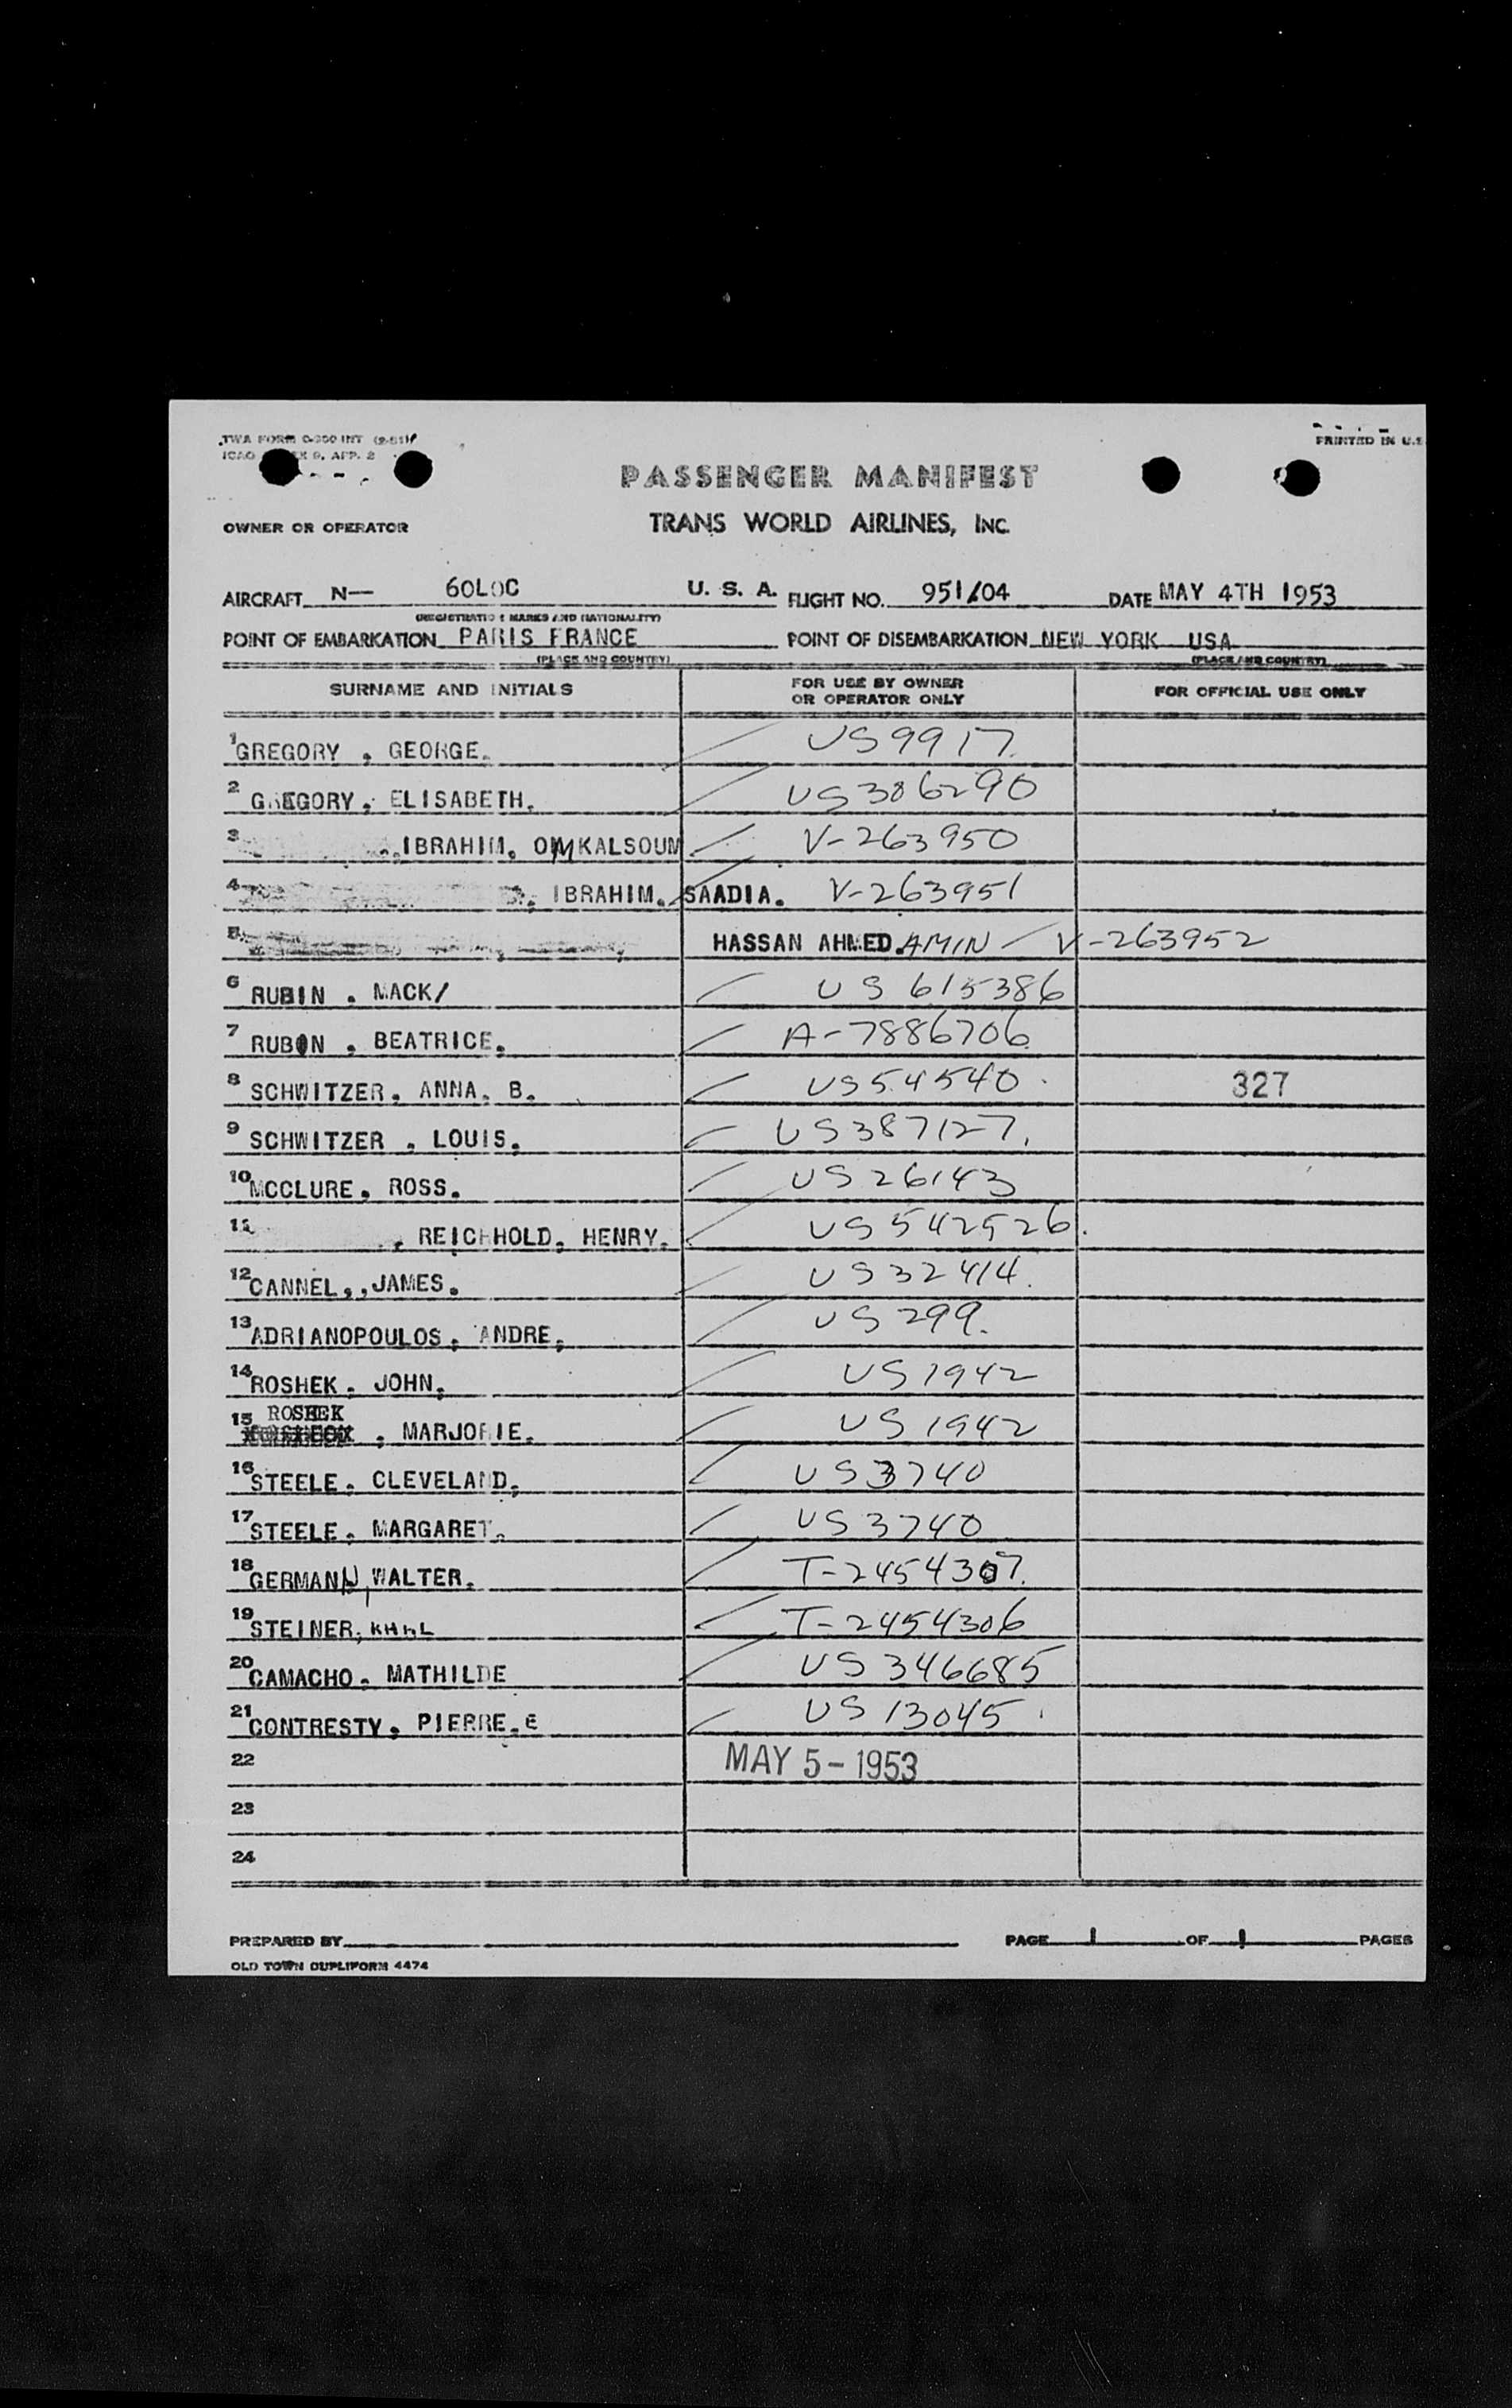 TWA FORM 0-300 INT (2-51)
ICAO EX 9, APP. 2
PRINTED IN U.S
PASSENGER MANIFEST
OWNER OR OPERATOR TRANS WORLD AIRLINES, INC.
AIRCRAFT N— 60LOC U. S. A. FLIGHT NO. 951/04 DATE MAY 4TH 1953
(REGISTRATION MARKS AND NATIONALITY)
POINT OF EMBARKATION PARIS FRANCE POINT OF DISEMBARKATION NEW YORK USA
(PLACE AND COUNTRY) (PLACE AND COUNTRY)
SURNAME AND INITIALS FOR USE BY OWNER OR OPERATOR ONLY FOR OFFICIAL USE ONLY
1 GREGORY , GEORGE. US9917.
2 GREGORY, ELISABETH. US386290
3 IBRAHIM. OMKALSOUM V-263950
4 IBRAHIM. SAADIA. V-263951
5 HASSAN AHMED. AMIN V-263952
6 RUBIN . MACK/ US 615386
7 RUBIN . BEATRICE. A-7886706
8 SCHWITZER. ANNA. B. US54540 327
9 SCHWITZER . LOUIS. US387127.
10 MCCLURE. ROSS. US26143
11 , REICHHOLD. HENRY. US542526.
12 CANNEL,,JAMES. US32414.
13 ADRIANOPOULOS. ANDRE, US299.
14 ROSHEK. JOHN. US1942
15 ROSHEK , MARJORIE. US1942
16 STEELE. CLEVELAND. US3740
17 STEELE. MARGARET. US3740
18 GERMANN, WALTER. T-2454307.
19 STEINER, KARL T-2454306
20 CAMACHO. MATHILDE US346685
21 CONTRESTY. PIERRE.E US13045.
22 MAY 5-1953
23
24
PREPARED BY PAGE 1 OF 1 PAGES
OLD TOWN DUPLIFORM 4474